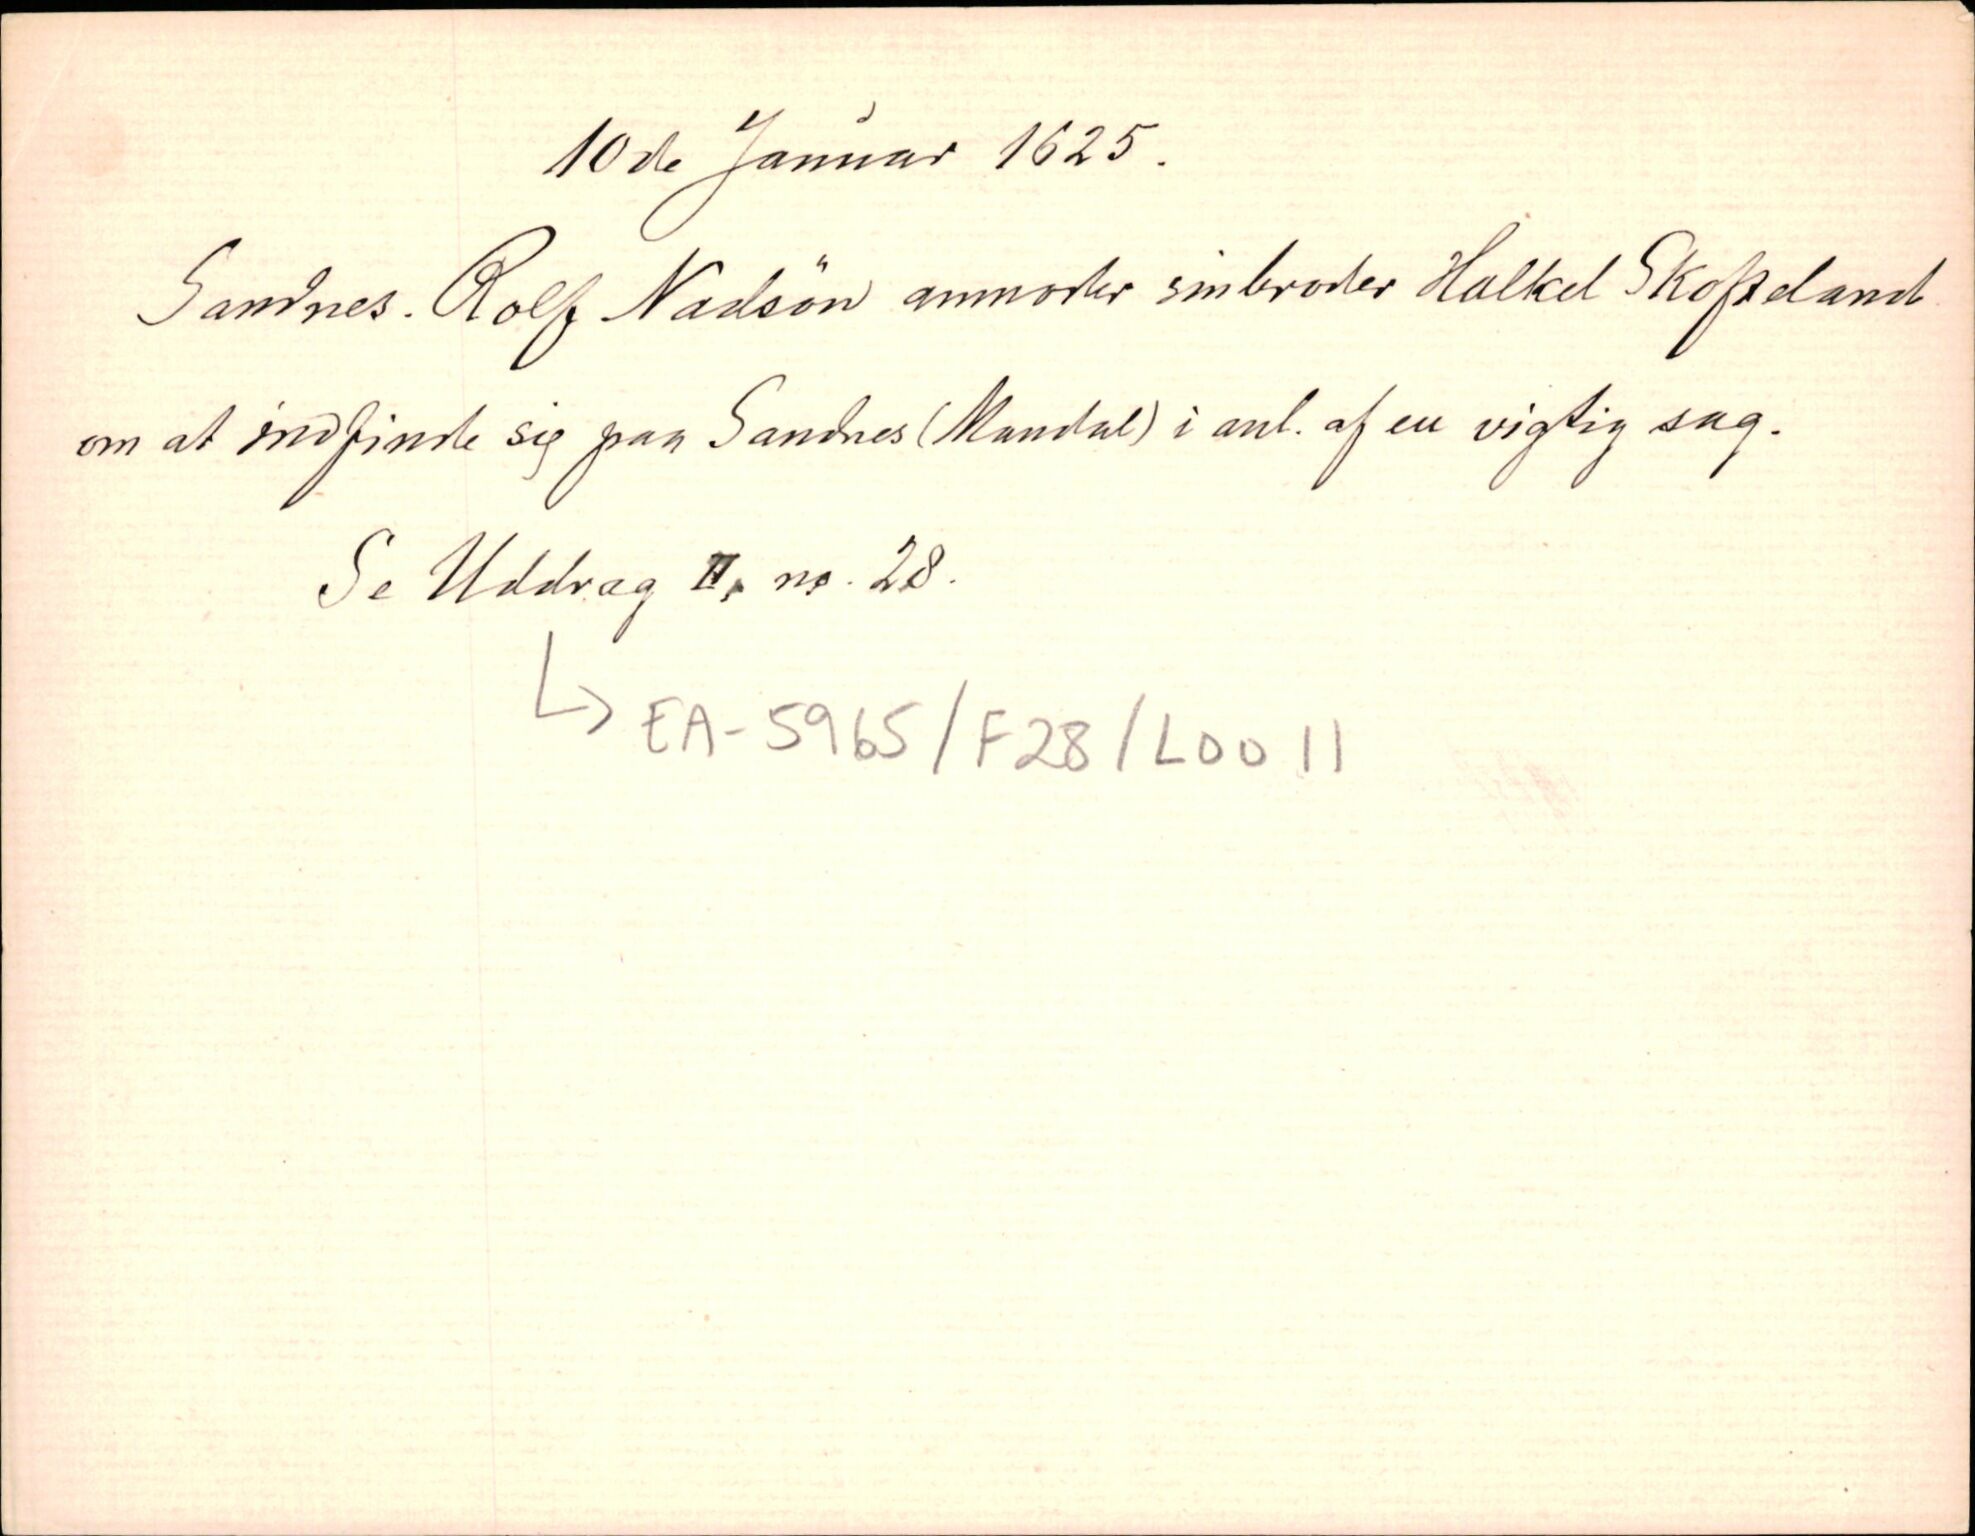 10de Januar 1625.
Sandnes. Rolf Nadsön anmoder sin broder Halkel Skofteland
om at indfinde sig paa Sandnes (Mandal) i anl. af en vigtig sag.
Se Uddrag II, no. 28.
↳ EA-5965/F28/L0011